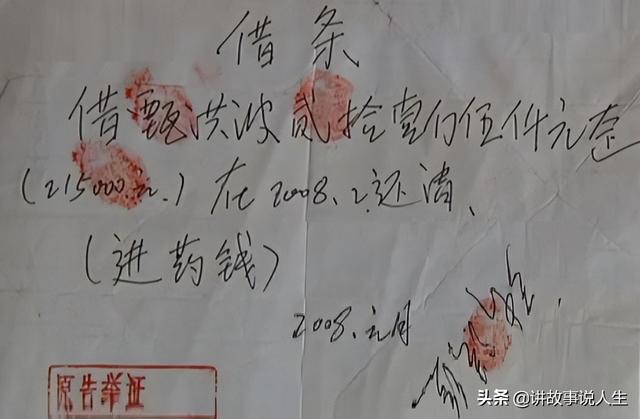 借条
借甄洪波贰拾壹万伍仟元整
(215000.元.)在2008.2.还清、
(进药钱)
2008.元月
原告举证
头条 @讲故事说人生